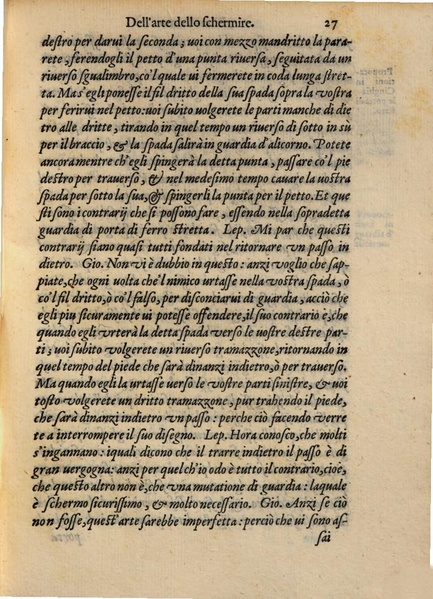 Dell'arte dello schermire. 27
destro per darui la seconda; uoi con mezzo mandritto la para-
rete, ferendogli il petto d'una punta riuersa, seguitata da un
riuerso sgualimbro, co'l quale ui fermerete in coda lunga stret
ta. Ma s'egli ponesse il fil dritto della sua spada sopra la vostra
per ferirui nel petto: uoi subito volgerete le parti manche di die
tro alle dritte, tirando in quel tempo un riuerso di sotto in sù
per il braccio, & la spada salirà in guardia d'alicorno. Potete
ancora mentre ch'egli spingerà la detta punta, passare co'l pie
destro per trauerso, & nel medesimo tempo cauare la uostra
spada per sotto la sua, & spingerli la punta per il petto. Et que
sti sono i contrarij che si possono fare, essendo nella sopradetta
guardia di porta di ferro stretta. Lep. Mi par che questi
contrarij siano quasi tutti fondati nel ritornare vn passo in
dietro. Gio. Non vi è dubbio in questo: anzi voglio che sap-
piate, che ogni volta che'l nimico urtasse nella vostra spada, ò
co'l fil dritto, ò co'l falso, per disconciarui di guardia, acciò che
egli piu sicuramente ui potesse offendere, il suo contrario è, che
quando egli vrterà la detta spada verso le uostre destre par-
ti; uoi subito volgerete un riuerso tramazzone, ritornando in
quel tempo del piede che sarà dinanzi indietro, ò per trauerso.
Ma quando egli la urtasse uerso le vostre parti sinistre, & uoi
tosto volgerete un dritto tramazzone, pur trahendo il piede,
che sarà dinanzi indietro vn passo: perche ciò facendo verre
te a interrompere il suo disegno. Lep. Hora conosco, che molti
s'ingannano: iquali dicono che il trarre indietro il passo è di
gran vergogna: anzi per quel ch'io odo è tutto il contrario, cioè,
che questo altro non è, che vna mutatione di guardia: laquale
è schermo sicurissimo, & molto necessario. Gio. Anzi se ciò
non fosse, quest'arte sarebbe imperfetta: perciò che ui sono as-
sai